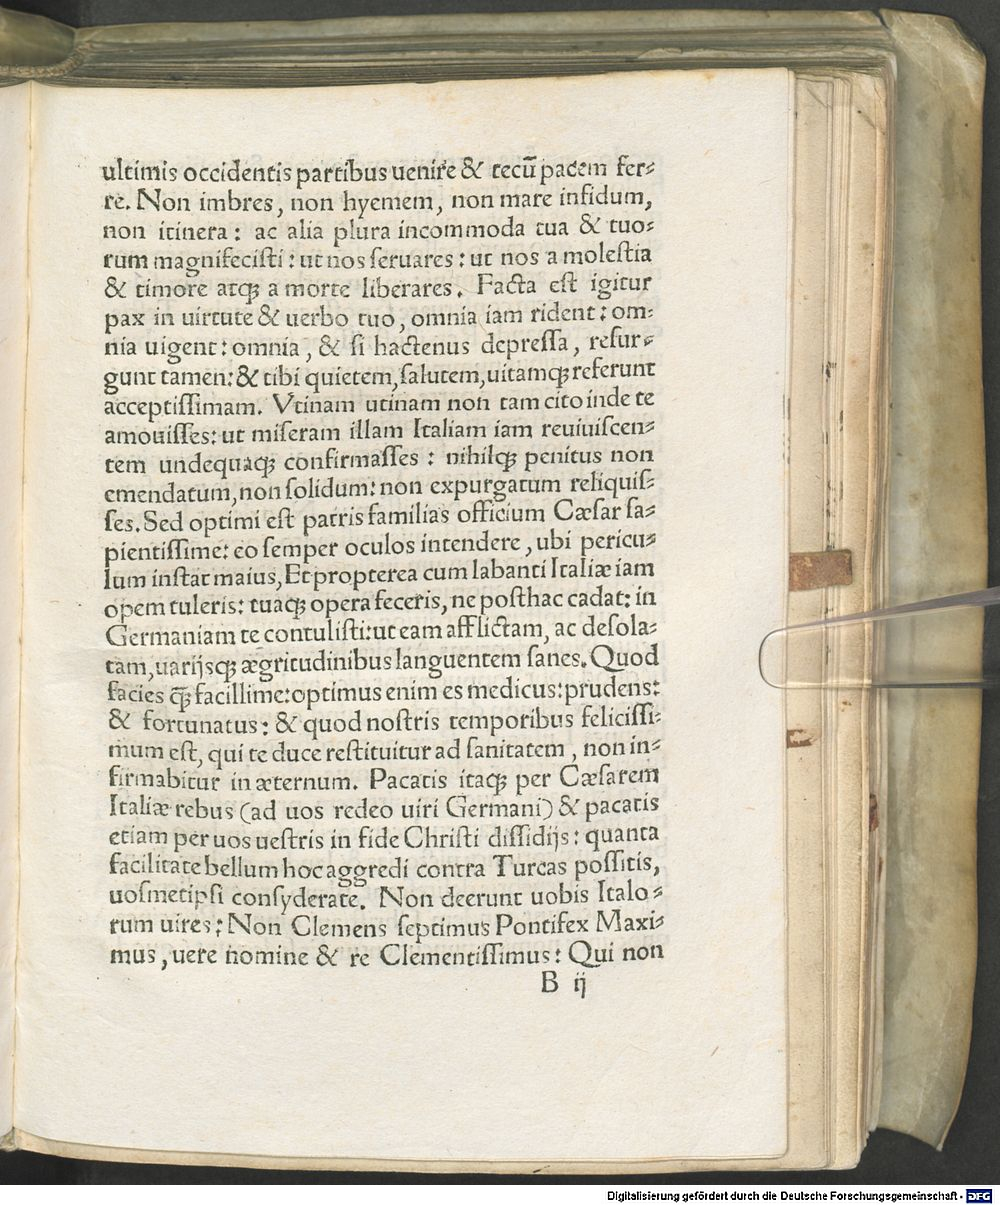 ultimis occidentis partibus uenire & tecū pacem fer⸗
re. Non imbres, non hyemem, non mare infidum,
non itinera: ac alia plura incommoda tua & tuo⸗
rum magnifecisti: ut nos seruares: ut nos a molestia
& timore atqꝫ a morte liberares. Facta est igitur
pax in uirtute & uerbo tuo, omnia iam rident: om⸗
nia uigent: omnia, & si hactenus depressa, resur⸗
gunt tamen: & tibi quietem, salutem, uitamqꝫ referunt
acceptissimam. Vtinam utinam non tam cito inde te
amouisses: ut miseram illam Italiam iam reuiuiscen⸗
tem undequaqꝫ confirmasses: nihilqꝫ penitus non
emendatum, non solidum: non expurgatum reliquis⸗
ses. Sed optimi est patris familias officium Cæsar sa⸗
pientissime: eo semper oculos intendere, ubi pericu⸗
lum instat maius, Et propterea cum labanti Italiæ iam
opem tuleris: tuaqꝫ opera feceris, ne posthac cadat: in
Germaniam te contulisti: ut eam afflictam, ac desola⸗
tam, uarijsqꝫ ægritudinibus languentem sanes. Quod
facies qꝫ̄ facillime: optimus enim es medicus: prudens:
& fortunatus: & quod nostris temporibus felicissi⸗
mum est, qui te duce restituitur ad sanitatem, non in⸗
firmabitur in æternum. Pacatis itaqꝫ per Cæsarem
Italiæ rebus (ad uos redeo uiri Germani) & pacatis
etiam per uos uestris in fide Christi dissidijs: quanta
facilitate bellum hoc aggredi contra Turcas possitis,
uosmetipsi consyderate. Non deerunt uobis Italo⸗
rum uires: Non Clemens septimus Pontifex Maxi⸗
mus, uere nomine & re Clementissimus: Qui non
B ij
Digitalisierung gefördert durch die Deutsche Forschungsgemeinschaft - DFG